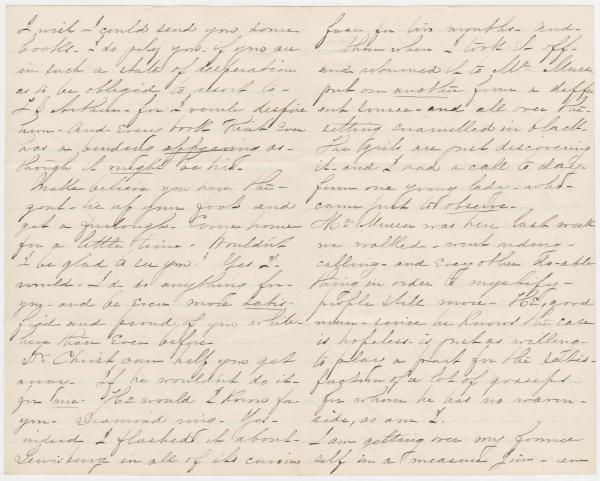 I wish I could send you some
books. I do pity you. if you are
in such a state of desperation
as to be obliged to resort to -
T. S. Arthur - for I verily despise
him - And Every book that Ever
has a binding appearing as -
though it might be his.
Make believe you have the -
gout - in of your foot and
get a furlough. Come home
for a little time. Wouldn't
I be glad to see you? Yes I -
would. I'd do anything for -
you - and be Even more satis-
fied and proud of you while -
here than Ever before.
Dr Christ can help you get
away. If he wouldn't do it -
for me. He would I know for
you. Diamond ring - Yes -
indeed I flashed it about -
Lewisburg in all of its
four for two months - and -
then when I took it off -
and returned it to Mr. Musser
put on another from a diffe
rent source - and all over the -
setting enamelled in black.
The Girls are just discovering
it - and I had a call to day -
from one young lady - who -
came just to observe.
Mr. Musser was here last week
we walked - went riding -
calling - and Every other do-able
thing in order to mystify -
people still more - He, good
man - since he knows the case
is hopeless is just as willing -
to play a part for the satis-
faction of a lot of gossips -
for whom he has no warm-
side, as am I.
I am getting over my former
self in a measure Jim - am